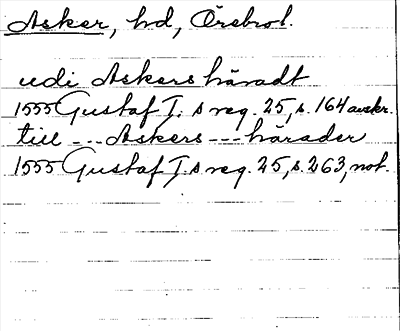 Asker, hd, Örebro l.
udi Askers häradt
1555 Gustaf I:s reg. 25, s. 164 avskr.
till --- Askers --- härader
1555 Gustaf I:s reg. 25, s. 263, not.